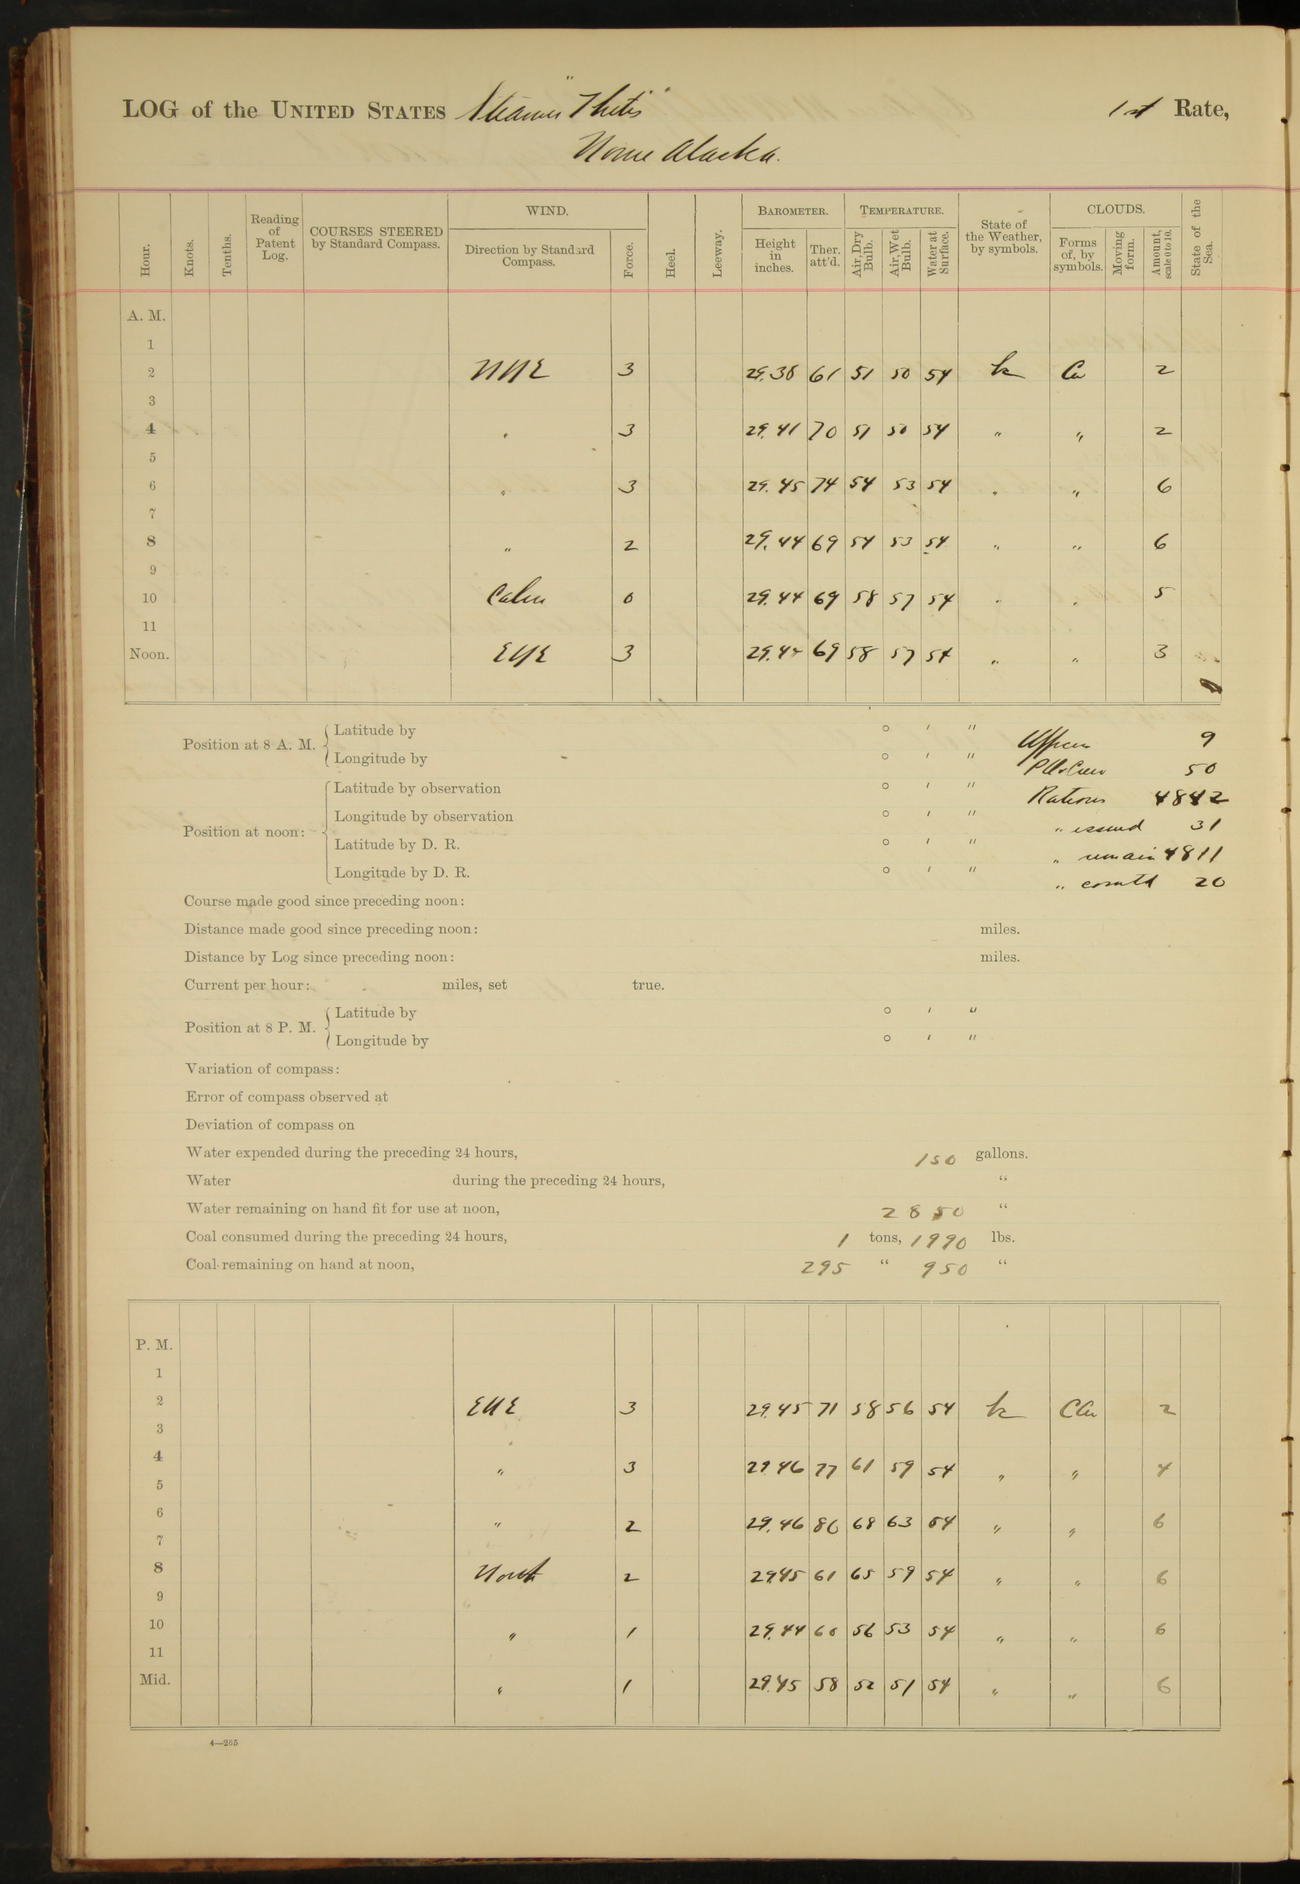 LOG of the UNITED STATES Steamer "Thetis" 1st Rate,
Nome Alaska.
Hour. Knots. Tenths. Reading of Patent Log. COURSES STEERED by Standard Compass. WIND. Direction by Standard Compass. Force. Heel. Leeway. BAROMETER. Height in inches. Ther. att'd. TEMPERATURE. Air, Dry Bulb. Air, Wet Bulb. Water at Surface. State of the Weather, by symbols. CLOUDS. Forms of, by symbols. Moving form. Amount, scale 0 to 10. State of the Sea.
A. M.
1
2 NNE 3 29.38 61 51 50 54 bc Cu 2
3
4 " 3 29.41 70 51 50 54 " " 2
5
6 " 3 29.45 74 54 53 54 " " 6
7
8 " 2 29.44 69 54 53 54 " " 6
9
10 Calm 0 29.44 69 58 57 54 " " 5
11
Noon. ENE 3 69 58 57 54 " " 3
Position at 8 A. M. Latitude by ° ' " Officers 9
Longitude by ° ' " P.O. & Crew 50
Position at noon: Latitude by observation ° ' " Rations 4842
Longitude by observation ° ' " " issued 31
Latitude by D. R. ° ' " " remain 4811
Longitude by D. R. ° ' " " comutd 20
Course made good since preceding noon:
Distance made good since preceding noon: miles.
Distance by Log since preceding noon: miles.
Current per hour: miles, set true.
Position at 8 P. M. Latitude by ° ' "
Longitude by ° ' "
Variation of compass:
Error of compass observed at
Deviation of compass on
Water expended during the preceding 24 hours, 150 gallons.
Water during the preceding 24 hours, "
Water remaining on hand fit for use at noon, 2850 "
Coal consumed during the preceding 24 hours, 1 tons, 1990 lbs.
Coal remaining on hand at noon, 295 " 950 "
P. M.
1
2 ENE 3 29.45 71 58 56 54 bc CCu 2
3
4 " 3 29 46 77 61 59 54 " " 4
5
6 " 2 29.46 80 68 63 54 " " 6
7
8 North 2 29.45 61 65 59 54 " " 6
9
10 " 1 29.44 60 56 53 54 " " 6
11
Mid. " 1 29.45 58 52 51 54 " " 6
4—265